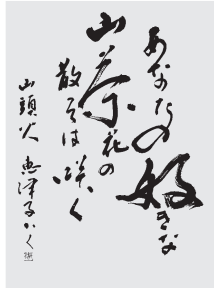 あなたの好きな
山茶花の
散つては咲く
山頭火 恵津子かく